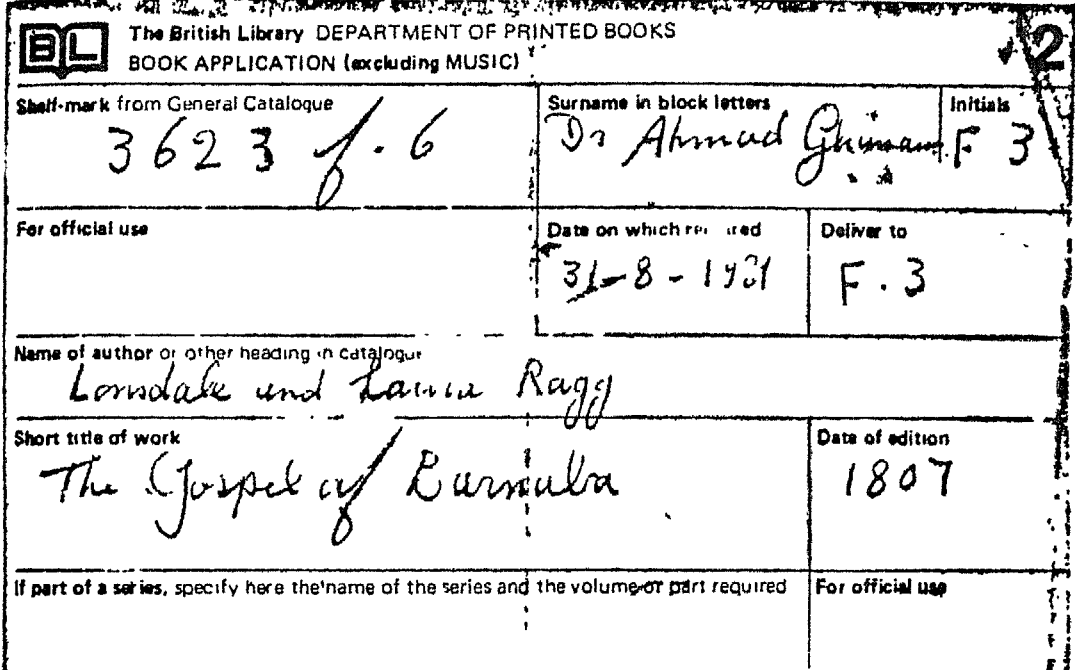 BL
The British Library DEPARTMENT OF PRINTED BOOKS
BOOK APPLICATION (excluding MUSIC)
2
Shelf-mark from General Catalogue
3623 f. 6
Surname in block letters
Dr Ahmad
Initials
F 3
For official use
Date on which
31-8-
Deliver to
F. 3
Name of author or other heading in catalogue
Lonsdale and Laura Ragg
Short title of work
The Gospel of Barnaba
Date of edition
1807
If part of a series, specify here the name of the series and the volume or part required
For official use